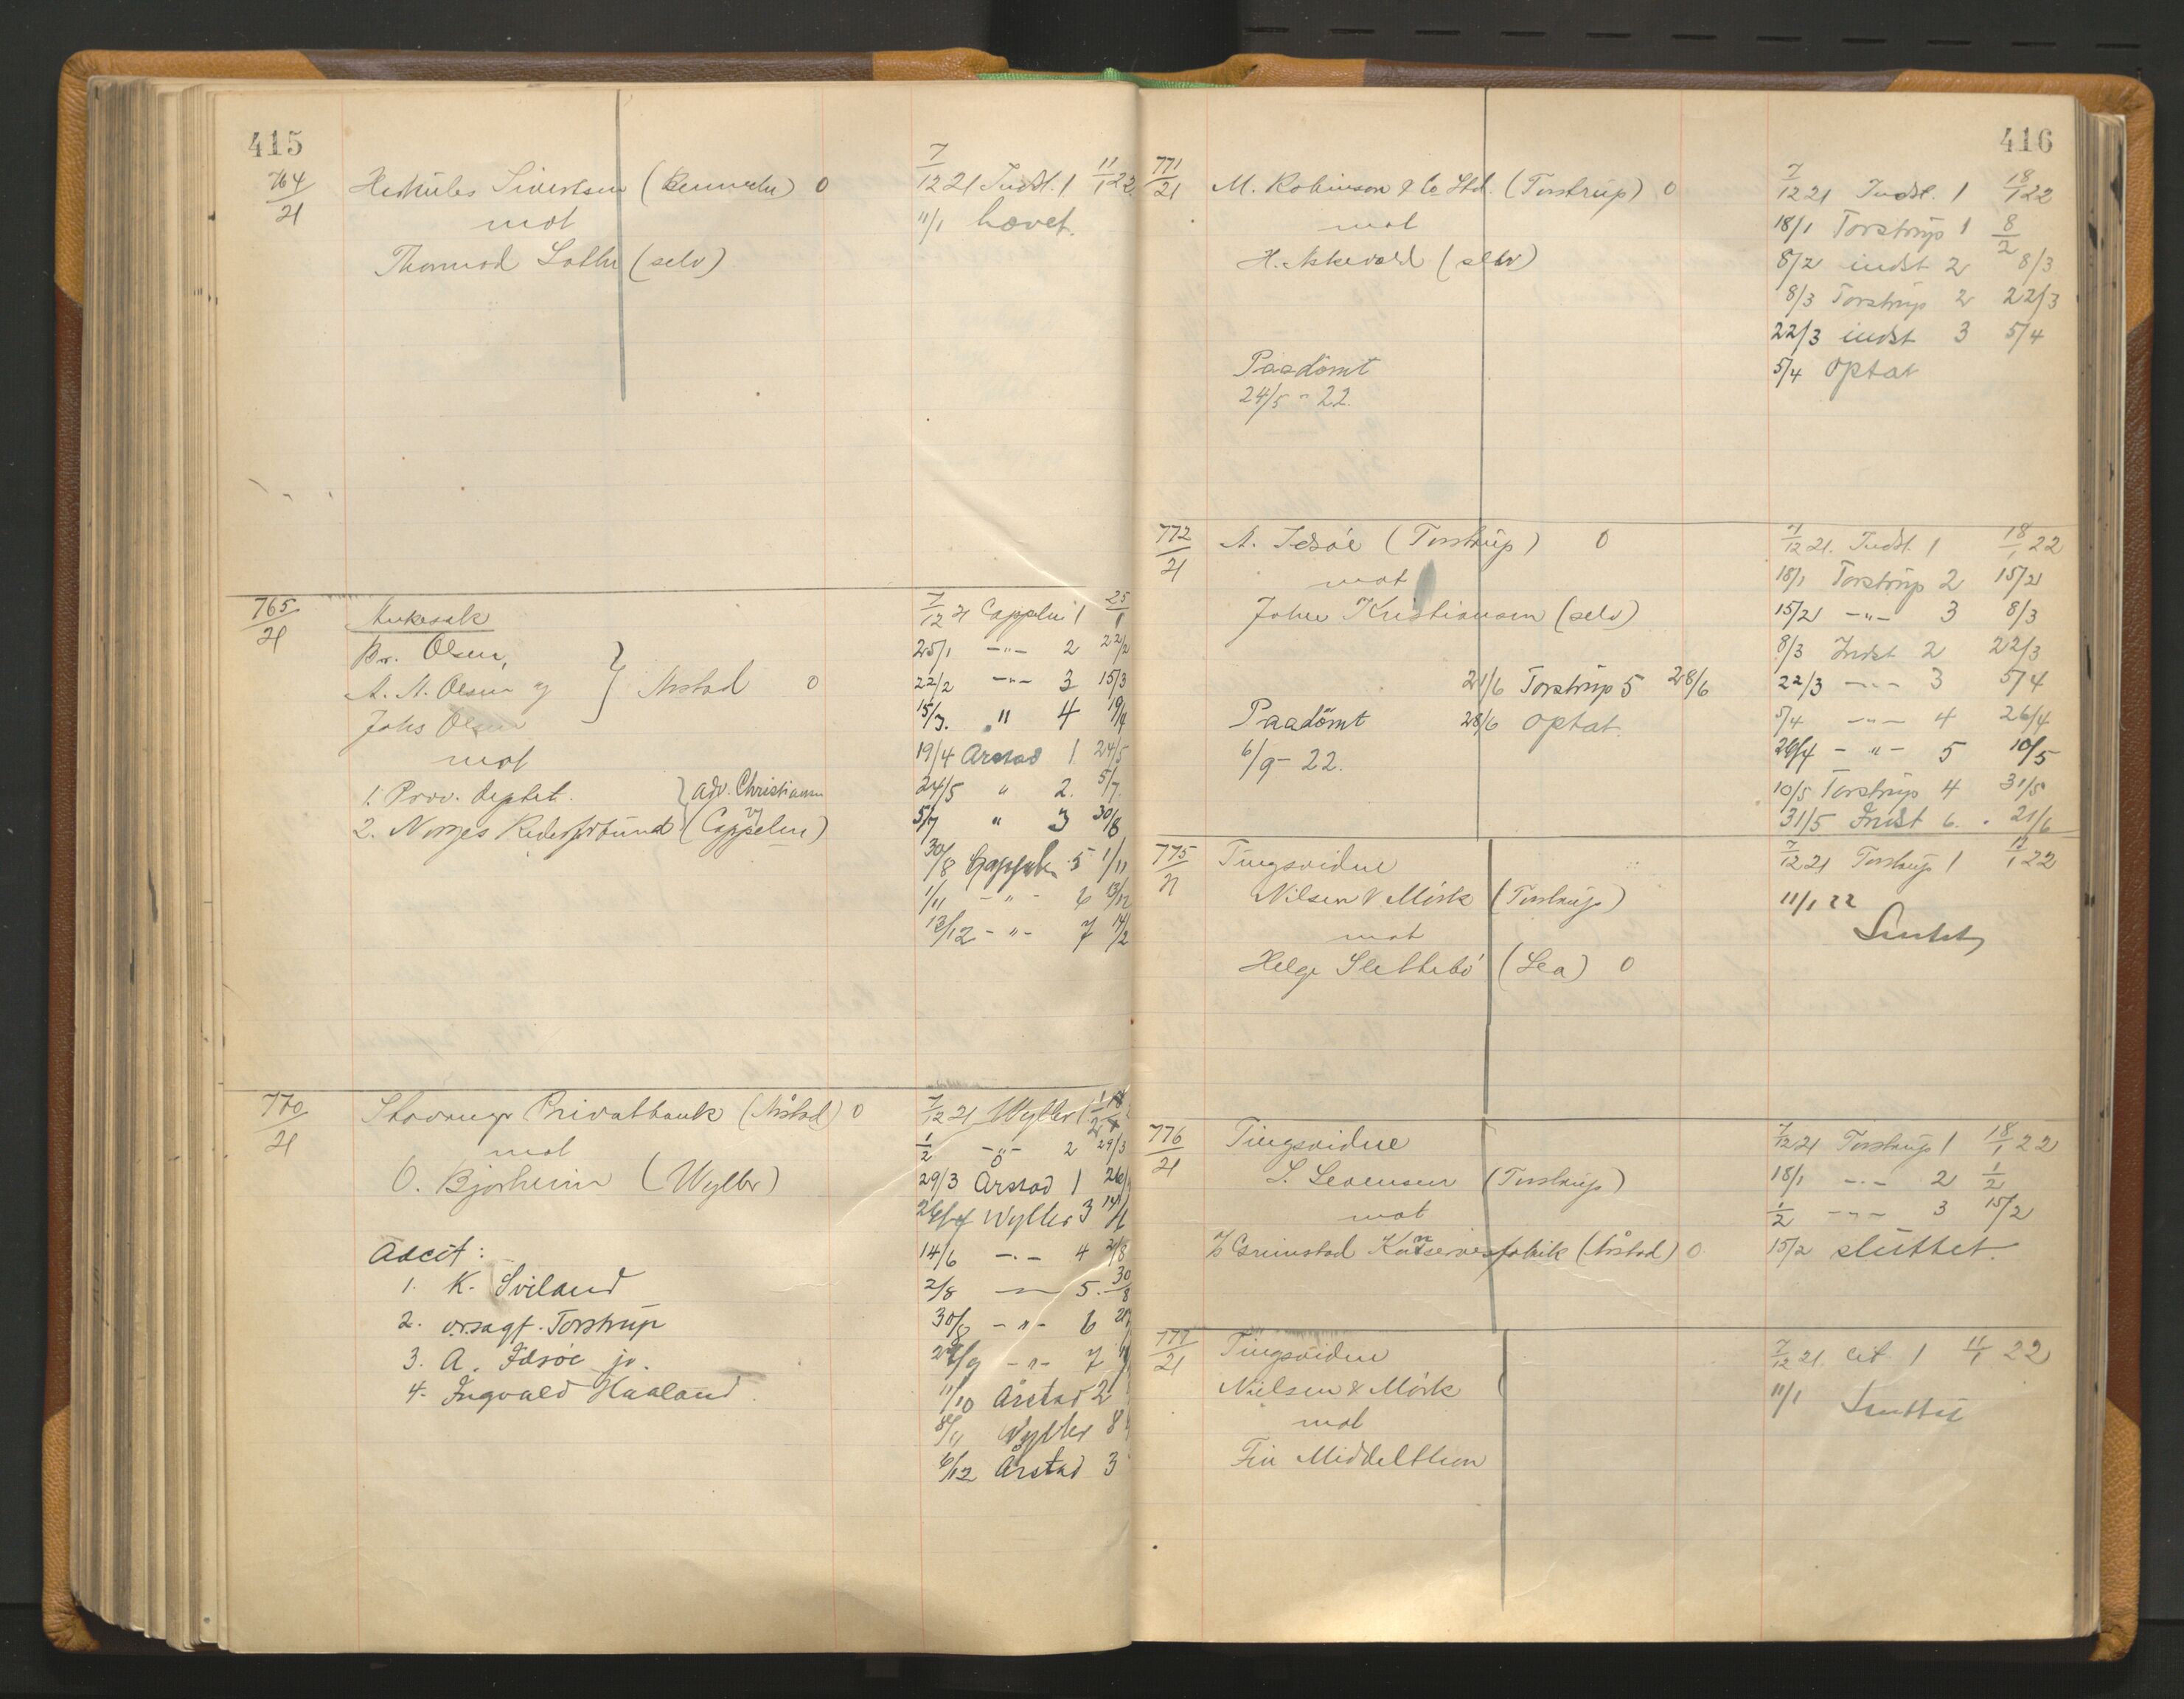 415
764/21 Herkules Sivertsen () 0 7/12 21 Indst. 1 11/1 22
mot 11/1 hævet.
Thormod (selv)
765/21 Ankesak 7/12 21 Cappelen 1 25/1
Br. Olsen, 25/1 -"- 2 22/2
A. M. Olsen og } Årstad 0 22/2 -"- 3 15/3
Johs Olsen 15/3. " 4 19/4
mot 19/4 Årstad 1 24/5
1. Prov. deptet. } adv. Christiansen 24/5 " 2. 5/7.
2. Norges Rederforbund (Cappelen) 5/7 " 3 30/8
30/8 Cappelen 5 1/11
1/11 -"- 6 13/12
13/12 -"- 7 14/2
770/21 Stavanger Privatbank (Årstad) 0 7/12 21 Wyller 1 1/2
mot 1/2 -"- 2 29/3
O. Bjorheim (Wyller) 29/3 Årstad 1 26/
26/4 Wyller 3 14/6
Adcit: 14/6 -"- 4 2/8
1. K. Sviland 2/8 -"- 5. 30/8
2. o.r.sagf. Torstrup 30/8 -"- 6
3. A. Idsöe jr. 27/9 -"- 7
4. Ingvald Haaland. 11/10 Årstad 2
8/11 Wyller 8
6/12 Årstad 3
416
771/21 M. Robinson & Co Ltd. (Torstrup) 0 7/12 21 Indst. 1 18/1 22
mot 18/1 Torstrup 1 8/2
H. Askevold (selv) 8/2 indst 2 8/3
8/3 Torstrup 2 22/3
22/3 indst 3 5/4
Paadömt 5/4 optat
24/5 - 22.
772/21 A. Idsöe (Torstrup) 0 7/12 21. Indst. 1 18/1 22
mot 18/1 Torstrup 2 15/2
John Kristiansen (selv) 15/2 -"- 3 8/3
8/3 Indst 2 22/3
21/6 Torstrup 5 28/6 22/3 -"- 3 5/4
Paadömt 28/6 optat. 5/4 -"- 4 26/4
6/9 - 22. 26/4 -"- 5 10/5
10/5 Torstrup 4 31/5
31/5 Indst 6. 21/6
775/21 Tingsvidne 7/12 21 Torstrup 1 11/1 22
Nilsen & Mörk (Torstrup) 11/1 22
mot Sluttet
Helge Slettebö (Lea) 0
776/21 Tingsvidne 7/12 21 Torstrup 1 18/1 22
S. Sevensen (Torstrup) 18/1 -"- 2 1/2
mot 1/2 -"- 3 15/2
Grimstad Konservesfabrik (Årstad) 0 15/2 sluttet.
777/21 Tingsvidne 7/12 21. Cit. 1 11/1 22
Nielsen & Mörk 11/1 Sluttet
mot
Fin Middelthon